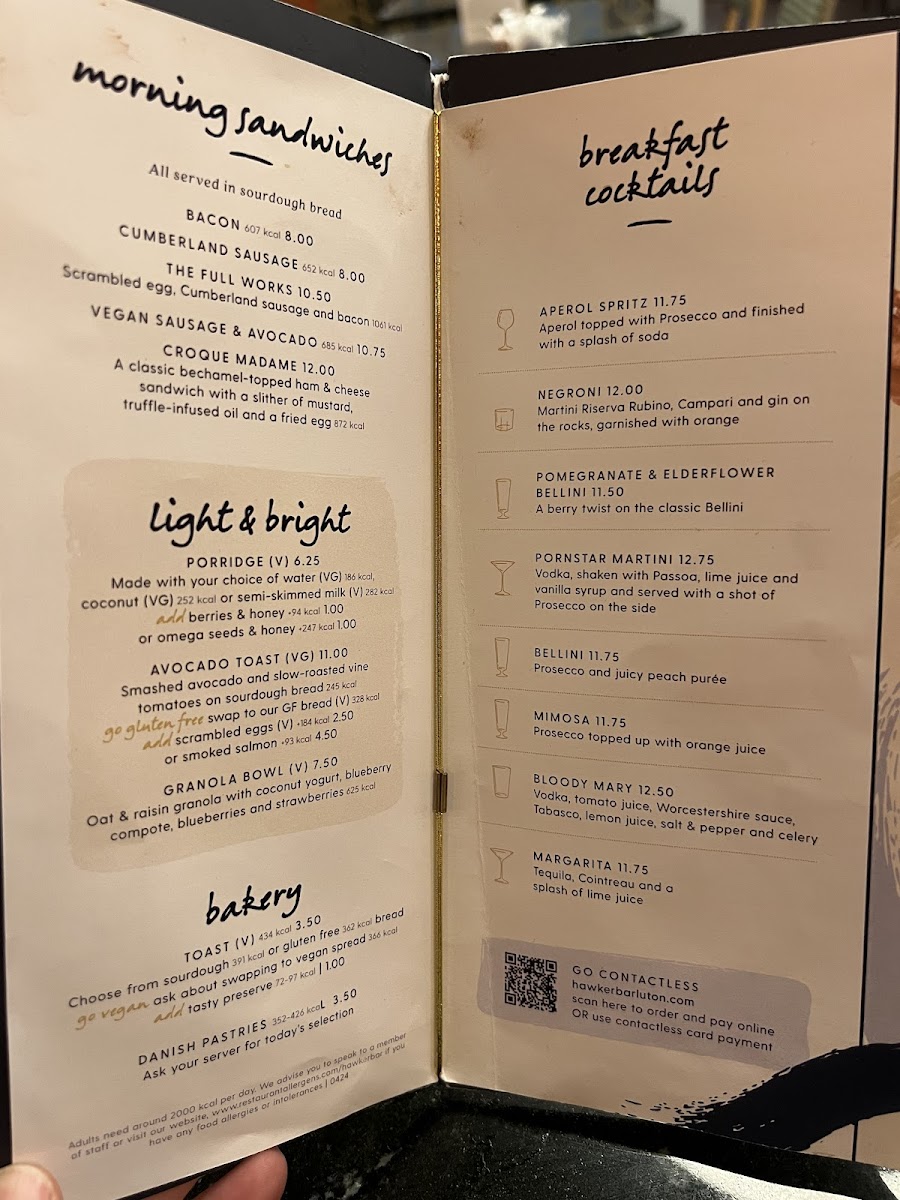 morning sandwiches
All served in sourdough bread
BACON 607 kcal 8.00
CUMBERLAND SAUSAGE 652 kcal 8.00
THE FULL WORKS 10.50
Scrambled egg, Cumberland sausage and bacon 1061 kcal
VEGAN SAUSAGE & AVOCADO 685 kcal 10.75
CROQUE MADAME 12.00
A classic bechamel-topped ham & cheese
sandwich with a slither of mustard,
truffle-infused oil and a fried egg 872 kcal
light & bright
PORRIDGE (V) 6.25
Made with your choice of water (VG) 186 kcal,
coconut (VG) 252 kcal or semi-skimmed milk (V) 282 kcal
add berries & honey +94 kcal 1.00
or omega seeds & honey +247 kcal 1.00
AVOCADO TOAST (VG) 11.00
Smashed avocado and slow-roasted vine
tomatoes on sourdough bread 245 kcal
go gluten free swap to our GF bread (V) 328 kcal
add scrambled eggs (V) +184 kcal 2.50
or smoked salmon +93 kcal 4.50
GRANOLA BOWL (V) 7.50
Oat & raisin granola with coconut yogurt, blueberry
compote, blueberries and strawberries 625 kcal
bakery
TOAST (V) 434 kcal 3.50
Choose from sourdough 391 kcal or gluten free 362 kcal bread
go vegan ask about swapping to vegan spread 366 kcal
add tasty preserve 72-97 kcal | 1.00
DANISH PASTRIES 352-426 kcaL 3.50
Ask your server for today's selection
Adults need around 2000 kcal per day. We advise you to speak to a member
of staff or visit our website, www.restaurantallergens.com/hawkerbar if you
have any food allergies or intolerances | 0424
breakfast
cocktails
APEROL SPRITZ 11.75
Aperol topped with Prosecco and finished
with a splash of soda
NEGRONI 12.00
Martini Riserva Rubino, Campari and gin on
the rocks, garnished with orange
POMEGRANATE & ELDERFLOWER
BELLINI 11.50
A berry twist on the classic Bellini
PORNSTAR MARTINI 12.75
Vodka, shaken with Passoa, lime juice and
vanilla syrup and served with a shot of
Prosecco on the side
BELLINI 11.75
Prosecco and juicy peach purée
MIMOSA 11.75
Prosecco topped up with orange juice
BLOODY MARY 12.50
Vodka, tomato juice, Worcestershire sauce,
Tabasco, lemon juice, salt & pepper and celery
MARGARITA 11.75
Tequila, Cointreau and a
splash of lime juice
GO CONTACTLESS
hawkerbarluton.com
scan here to order and pay online
OR use contactless card payment